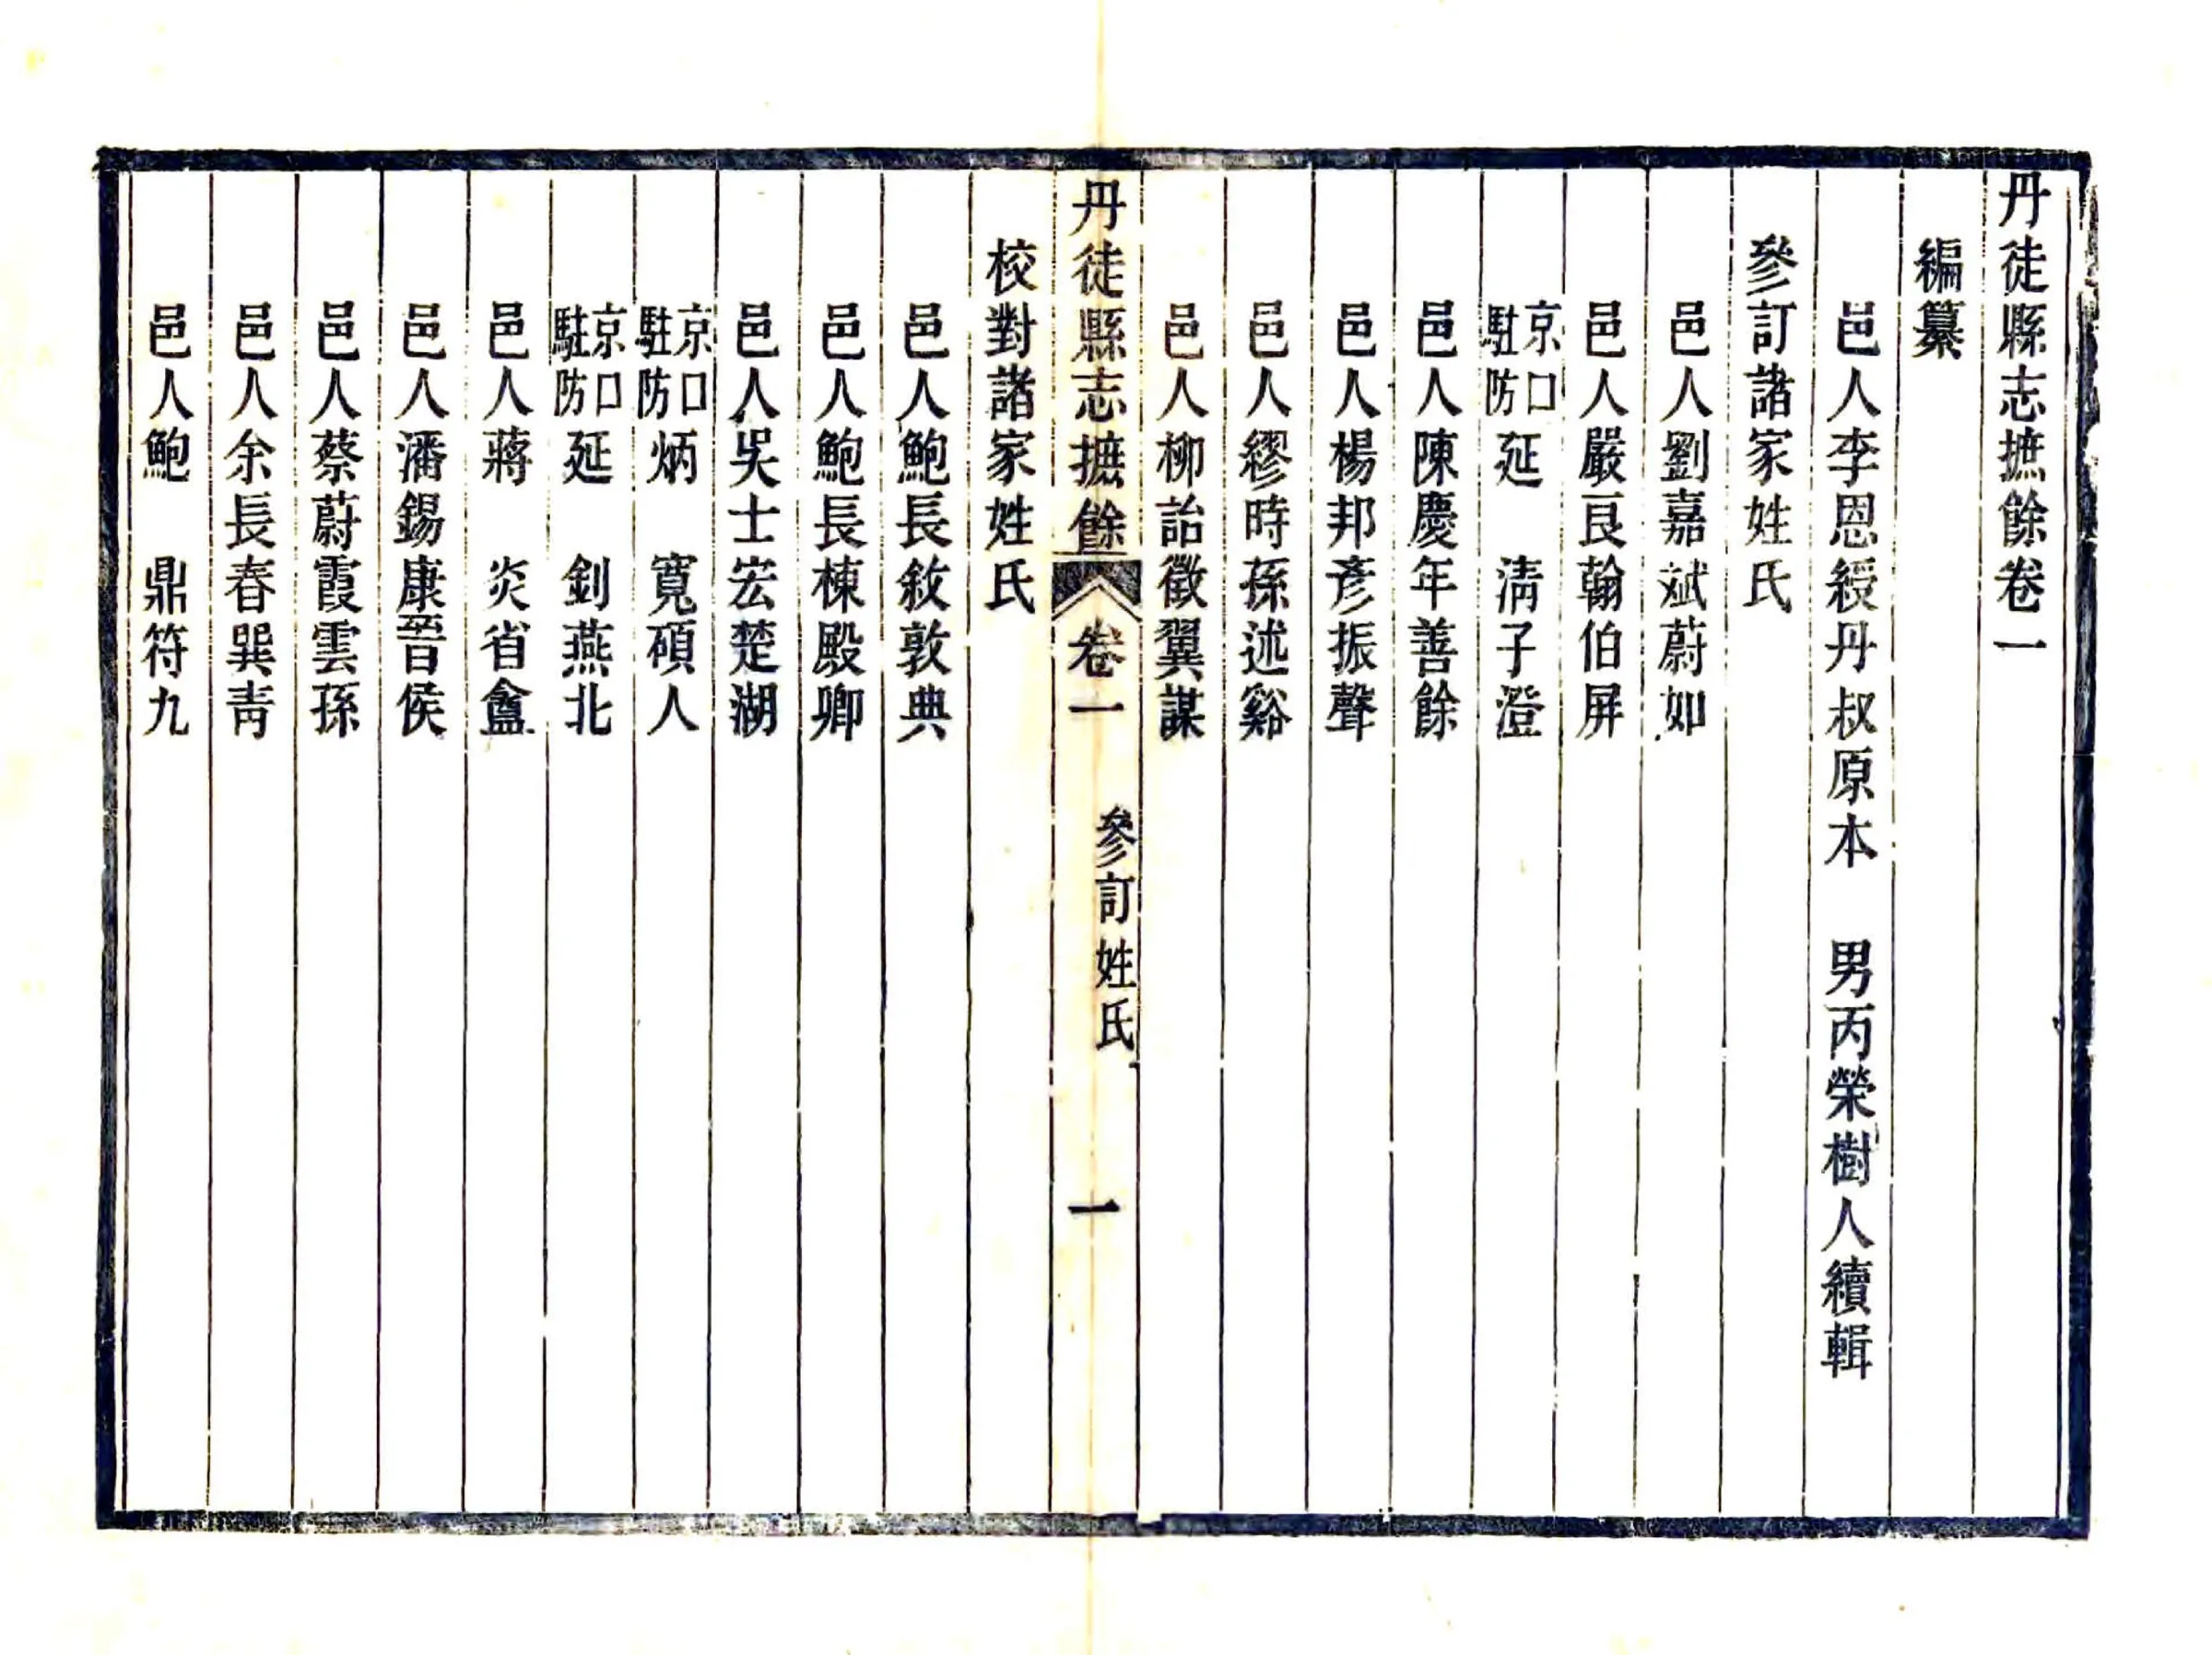 丹徒縣志摭餘卷一
編纂
邑人李恩綬丹叔原本　男丙榮樹人續輯
參訂諸家姓氏
邑人劉嘉斌蔚如
邑人嚴良翰伯屏
京口駐防延　淸子澄
邑人陳慶年善餘
邑人楊邦彥振聲
邑人繆時孫述谿
邑人柳詒徵翼謀
丹徒縣志摭餘　卷一　參訂姓氏　一
校對諸家姓氏
邑人鮑長敘敦典
邑人鮑長棟殿卿
邑人吳士宏楚湖
京口駐防炳　寬碩人
京口駐防延　釗燕北
邑人蔣　炎省盦
邑人潘錫康晉侯
邑人蔡蔚霞雲孫
邑人余長春巽靑
邑人鮑　鼎符九